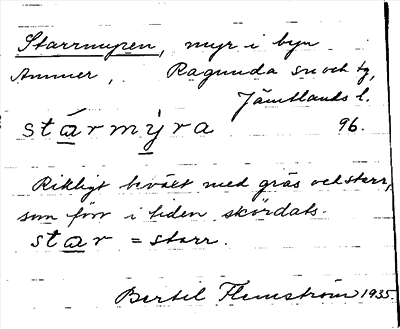 Starrmyren, myr i byn
Ammer, Ragunda sn och tg,
Jämtlands l.
stármýra 96.
Rikligt beväxt med gräs och starr,
som förr i tiden skördats.
star = starr.
Bertil Flemström 1935.